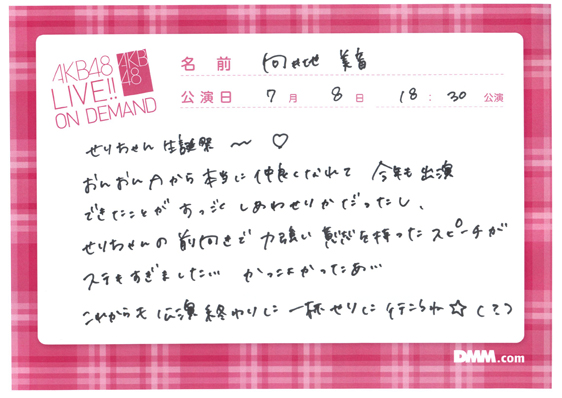 AKB48
LIVE!!
ON DEMAND
AKB
48
名前 向井地 美音
公演日 7月 8日 18:30 公演
せりちゃん 生誕祭 〜 ♡
おんおんAから本当に仲良くなれて 今年も出演
できたことが すっごく しあわせりかだったし、
せりちゃんの前向きで 力強い 意志を持ったスピーチが
ステキすぎました… かっこよかったあ…
これからも 公演終わりに 一杯せりに行こうね☆ して
DMM.com